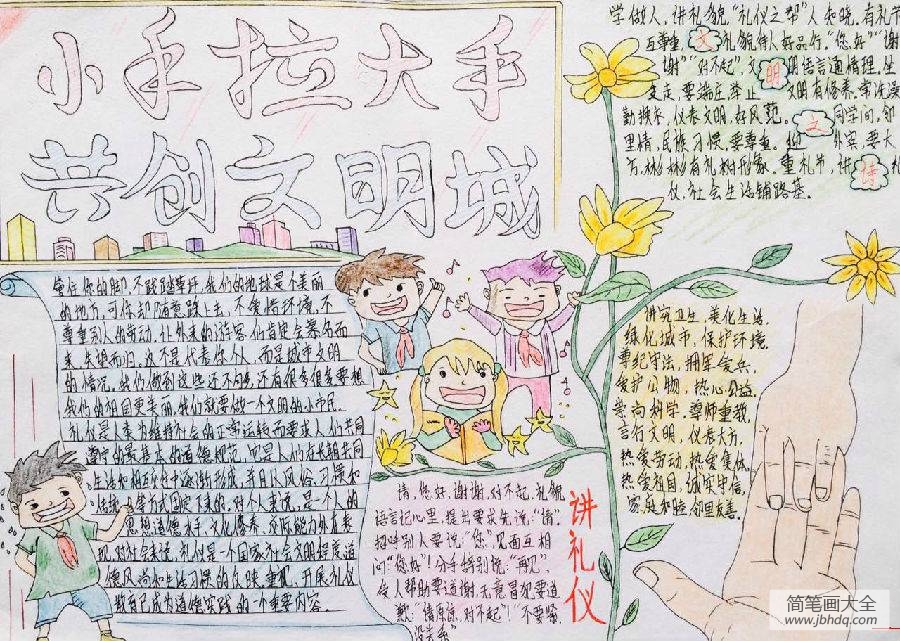 小手拉大手
共创文明城
学做人，讲礼貌，“礼仪之邦”人知晓，有礼节
互尊重，文礼貌待人好品行。“您好”“谢
谢”“对不起”，文明语言通情理。坐
立走，要端正，举止文明有修养，常洗澡
勤换衣，仪表文明，好风范。同学间，邻
里情，民族习惯，要尊重。外宾，要大
方，彬彬有礼树形象。重礼节，讲待礼
仪，社会生活铺路基。
管住你的脚，不践踏草坪，我们的地球是个美丽
的地方，可你却随意踩上去，不爱惜环境，不
尊重别人的劳动，让外来的游客，他们肯定会慕名而
来，失望而归，这不是代表你个人，而是城市文明
的情况。我们做到这些还不够，还有很多很多要想
我们的祖国更美丽，我们就要做一个文明的小市民。
礼仪是人类为维持社会的正常运转而要求人们共同
遵守的最基本的道德规范，它是人们在长期共同
生活和相互交往中逐渐形成，并且以风俗、习惯和
传统等方式固定下来的。对个人来说，是一个人的
思想道德水平、文化修养、交际能力外在表
现，对社会来说，礼仪是一个国家社会文明程度、道
德风尚和生活习惯的反映。重视、开展礼仪
教育已成为道德实践的一个重要内容。
请，您好，谢谢，对不起，礼貌
语言记心里，提出要求先说：“请”。
招呼别人要说：“您”，见面互相
问“您好”！分手特别说：“再见”，
受人帮助要道谢，无意冒犯要道
歉：“请原谅，对不起”！“不要紧，
没关系”
讲礼仪
讲究卫生，美化生活，
绿化城市，保护环境，
尊纪守法，拥军爱兵，
爱护公物，热心公益，
崇尚科学，尊师重教，
言行文明，仪表大方，
热爱劳动，热爱集体，
热爱祖国，诚实守信，
家庭和睦，邻里友善。
简笔画大全
www.jbhdq.com